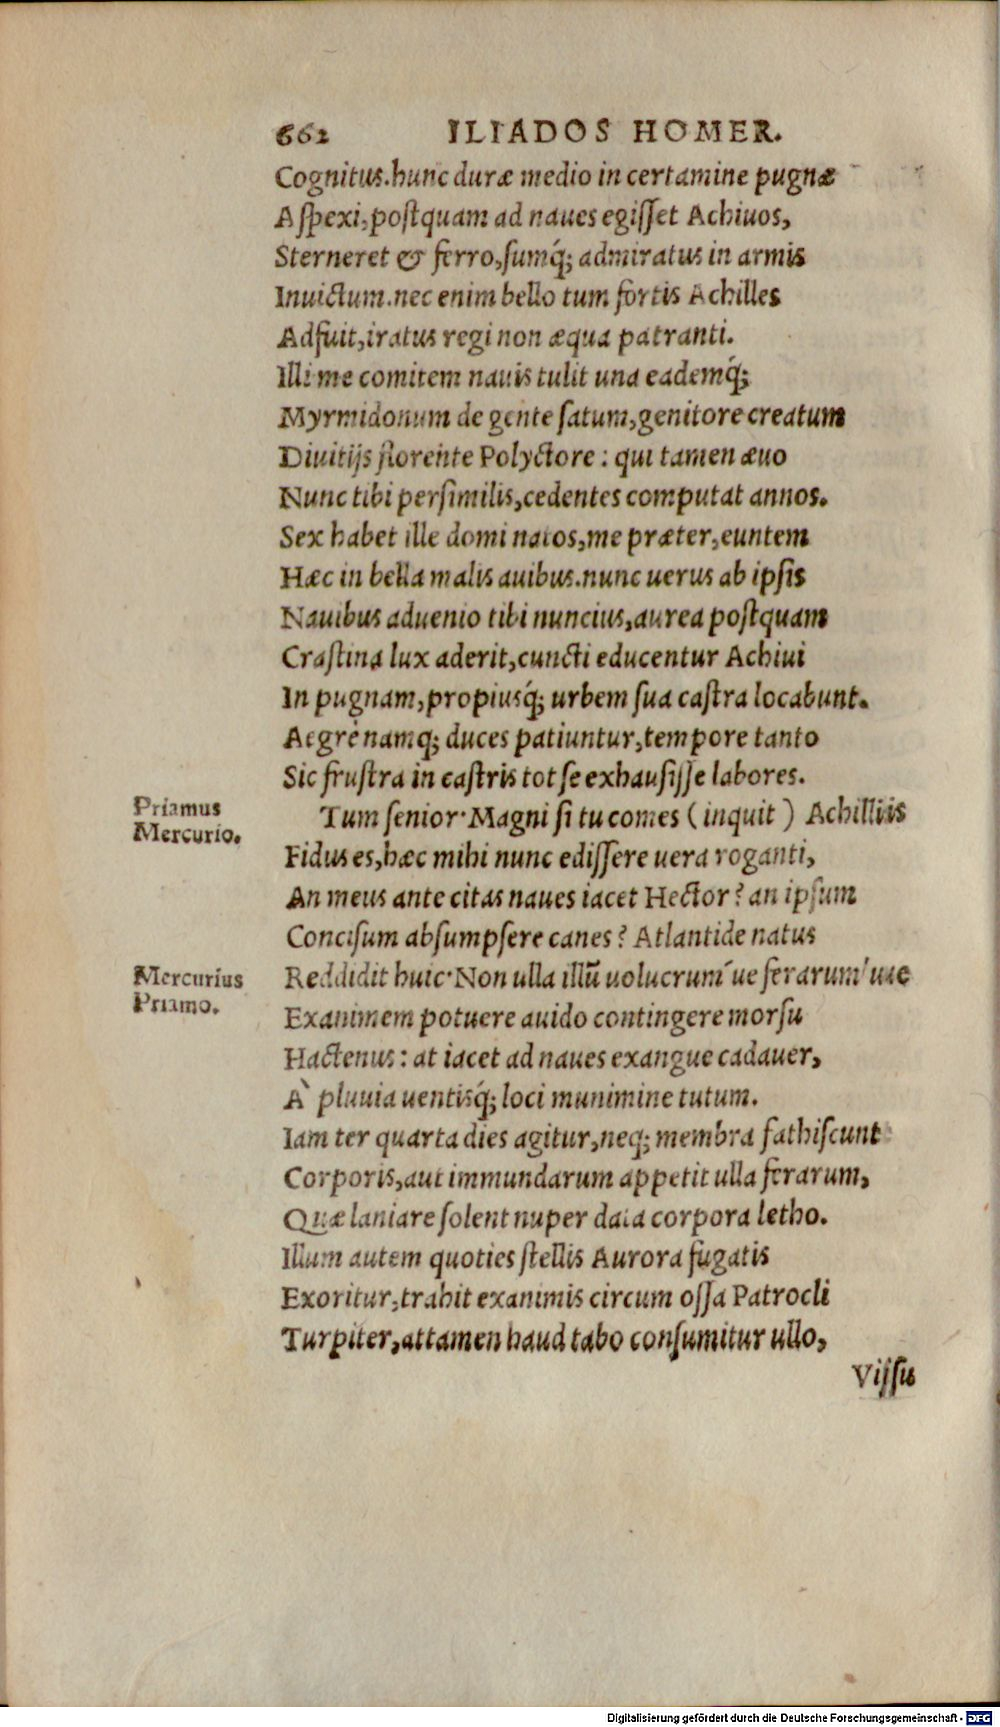 662 ILIADOS HOMER.
Cognitus. hunc duræ medio in certamine pugnæ
Aſpexi, poſtquam ad naues egiſſet Achiuos,
Sterneret & ferro, ſumq́; admiratus in armis
Inuictum. nec enim bello tum fortis Achilles
Adfuit, iratus regi non æqua patranti.
Illi me comitem nauis tulit una eademq́;
Myrmidonum de gente ſatum, genitore creatum
Diuitijs florente Polyctore: qui tamen æuo
Nunc tibi perſimilis, cedentes computat annos.
Sex habet ille domi natos, me præter, euntem
Hæc in bella malis auibus. nunc uerus ab ipſis
Nauibus aduenio tibi nuncius, aurea poſtquam
Craſtina lux aderit, cuncti educentur Achiui
In pugnam, propiusq́; urbem ſua caſtra locabunt.
Aegrè namq; duces patiuntur, tempore tanto
Sic fruſtra in caſtris tot ſe exhauſiſſe labores.
Priamus
Mercurio.
Tum ſenior· Magni ſi tu comes (inquit) Achilliis
Fidus es, hæc mihi nunc ediſſere uera roganti,
An meus ante citas naues iacet Hector? an ipſum
Conciſum abſumpſere canes? Atlantide natus
Mercurius
Priamo.
Reddidit huic· Non ulla illũ uolucrum´ue ferarum´uae
Exanimem potuere auido contingere morſu
Hactenus: at iacet ad naues exangue cadauer,
À pluuia uentisq́; loci munimine tutum.
Iam ter quarta dies agitur, neq; membra fathiſcunt
Corporis, aut immundarum appetit ulla ferarum,
Quæ laniare ſolent nuper data corpora letho.
Illum autem quoties ſtellis Aurora fugatis
Exoritur, trahit exanimis circum oſſa Patrocli
Turpiter, attamen haud tabo conſumitur ullo,
Viſſu
Digitalisierung gefördert durch die Deutsche Forschungsgemeinschaft - DFG